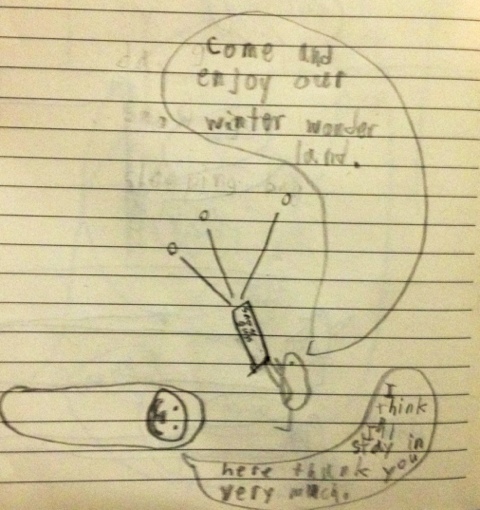 Come and
enjoy our
winter wonder
land.
sleeping
I
think
I'll
stay in
here thank you
very much.